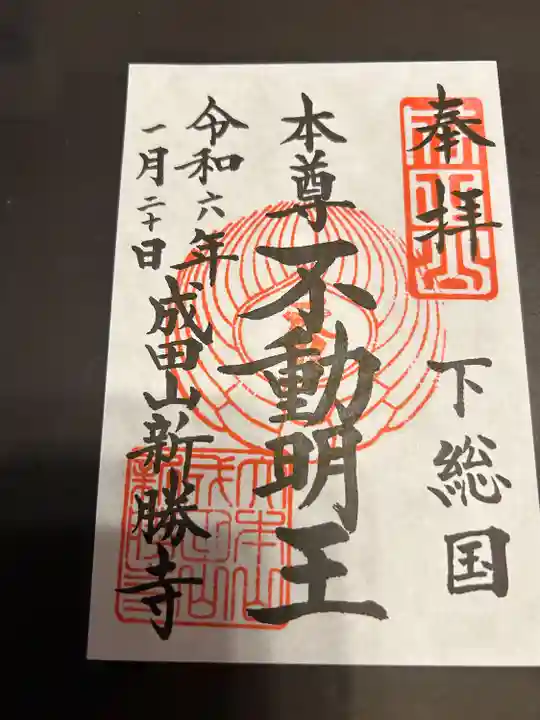 奉拝
下総国
本尊 不動明王
令和六年
一月二十日
成田山新勝寺